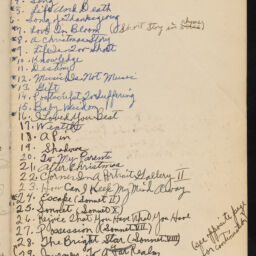 4. Song
*5. Life And Death
*6. Song of Thanksgiving
*7. Love In Bloom (A Short Story in Rhyme)
*8. A Christmas Story
*9. Life Is Too Short
*10. Knowledge
11. Destiny
*12. Music Is Not Music
*13. Gift
14. Postscript To Suffering
*15. Baby Wisdom
*16. I Loved You Best
17. Wealth
18. A Pin
19. Shadows
20. To My Parents
21. After Christmas
22. Corner In A Portrait Gallery II
23. How Can I Keep My Mind Away
*24. Escape (Sonnet II)
*25. Sonnet (Sonnet X)
*26. Rejoice That You Have What You Have
*27. Possession (Sonnet VII)
*28. The Bright Star (Sonnet VIII)
29. To A Far Realm
(See opposite page for continuation)